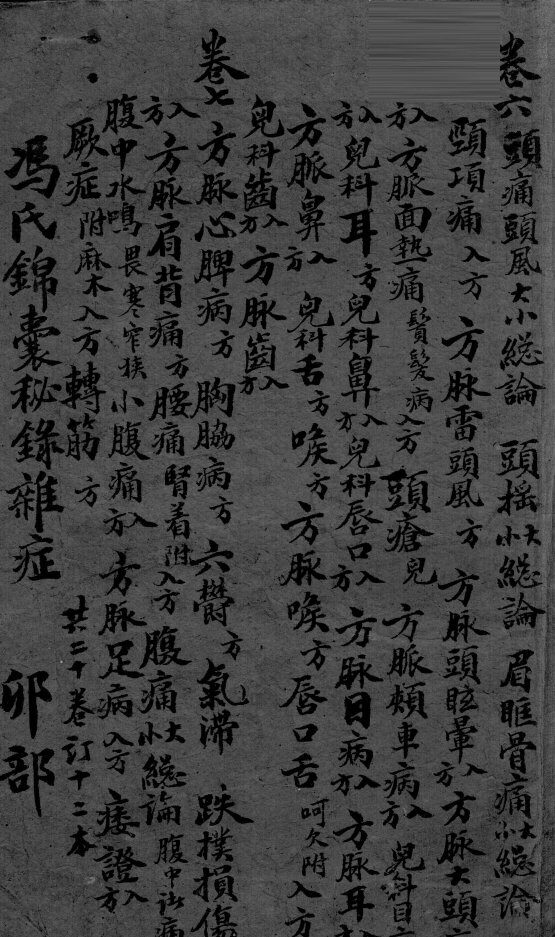 卷六頭痛頭風大小總論 頭搖大小總論 眉眶骨痛大小總論
頸項痛入方 方脉雷頭風方 方脉頭眩暈入方 方脉大頭
入方 方脈面熱痛鬢髮病入方 頭瘡兒 方脈頰車病入方 兒科目
入方 兒科耳方 兒科鼻入方 兒科唇口入方 方脉目病入方 方脉耳
方脈鼻入方 兒科舌方 喉方 方脉喉方 唇口舌呵欠附入方
兒科齒入方 方脉齒入方
卷七 方脉心脾病方 胸脇病方 六鬱方 氣滯 跌撲損傷
入方 方脉肩背痛方 腰痛腎着附入方 腹痛大小總論腹中
腹中水鳴畏寒窄狹 小腹痛入方 方脉足病入方 痿證入方
厥症附麻木入方 轉筋方 共二十卷訂十二本
馮氏錦囊秘錄雜症 卯部